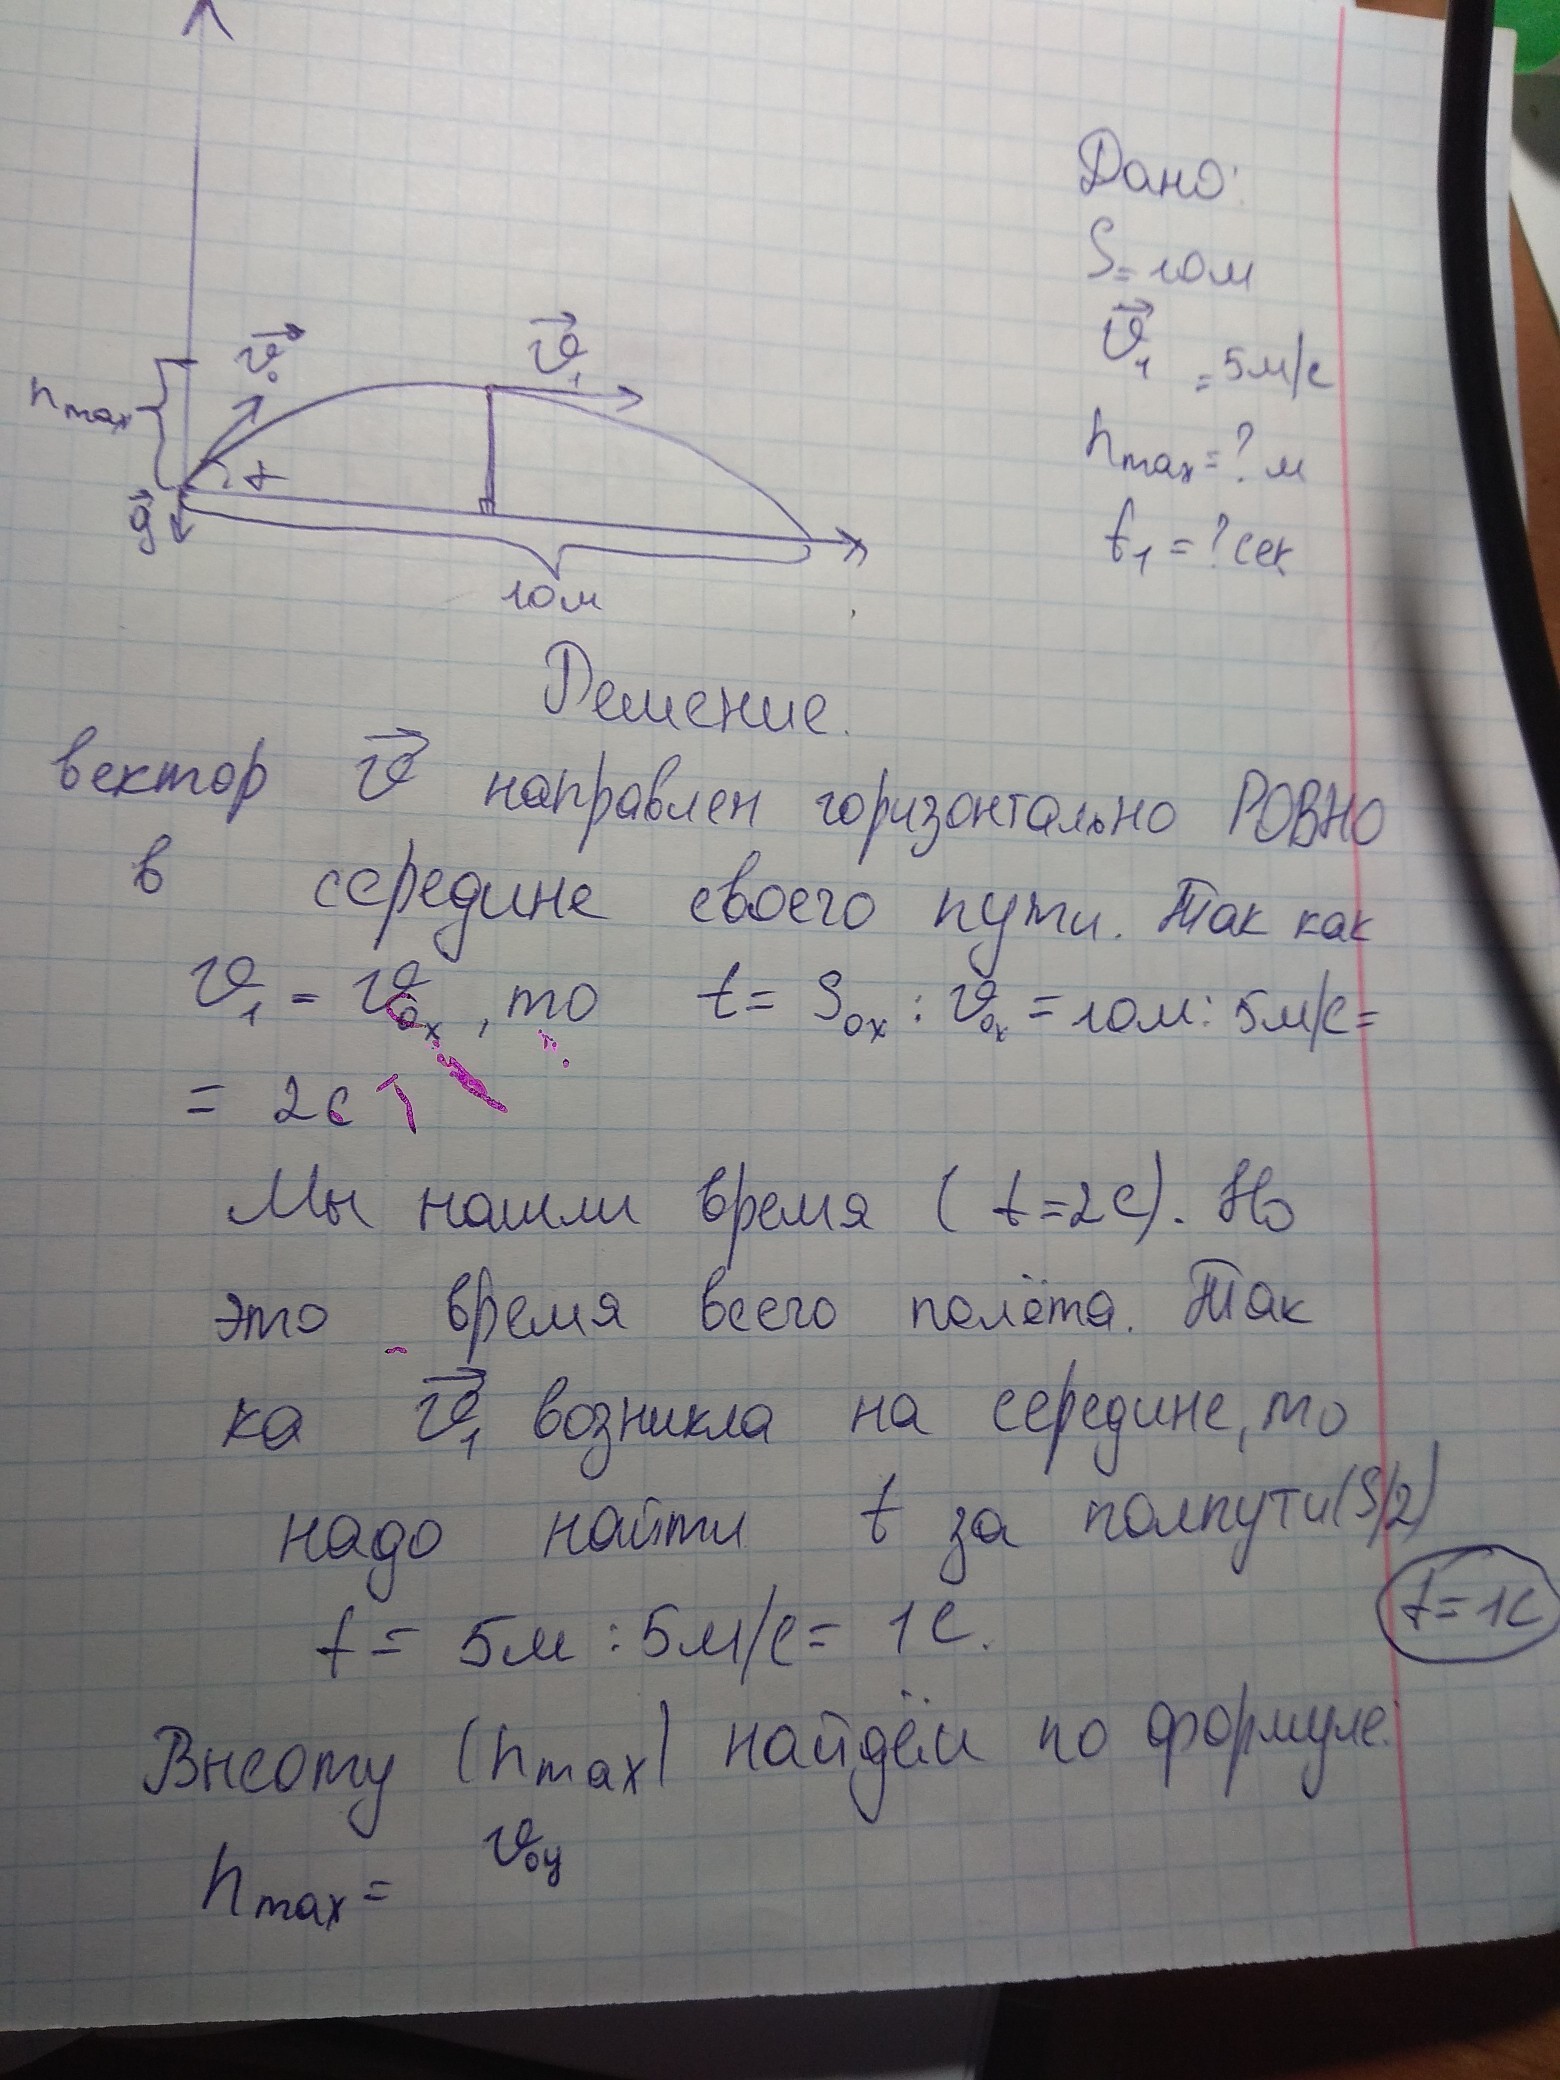 Дано:
S = 10м
v⃗₁ = 5м/с
hmax = ? м
t₁ = ? сек
v⃗₀
v⃗₁
hmax
α
g⃗
x
10м
Решение.
вектор v⃗ направлен горизонтально РОВНО
в середине своего пути. Так как
v₁ = v₀ₓ, то t = S₀ₓ : v₀ₓ = 10м : 5м/с =
= 2с
Мы нашли время (t=2с). Но
это время всего полёта. Так
ка v⃗₁ возникла на середине, то
надо найти t за полпути (S/2)
t = 5м : 5м/с = 1с.
t = 1с
Высоту (hmax) найдём по формуле:
hmax = v₀y